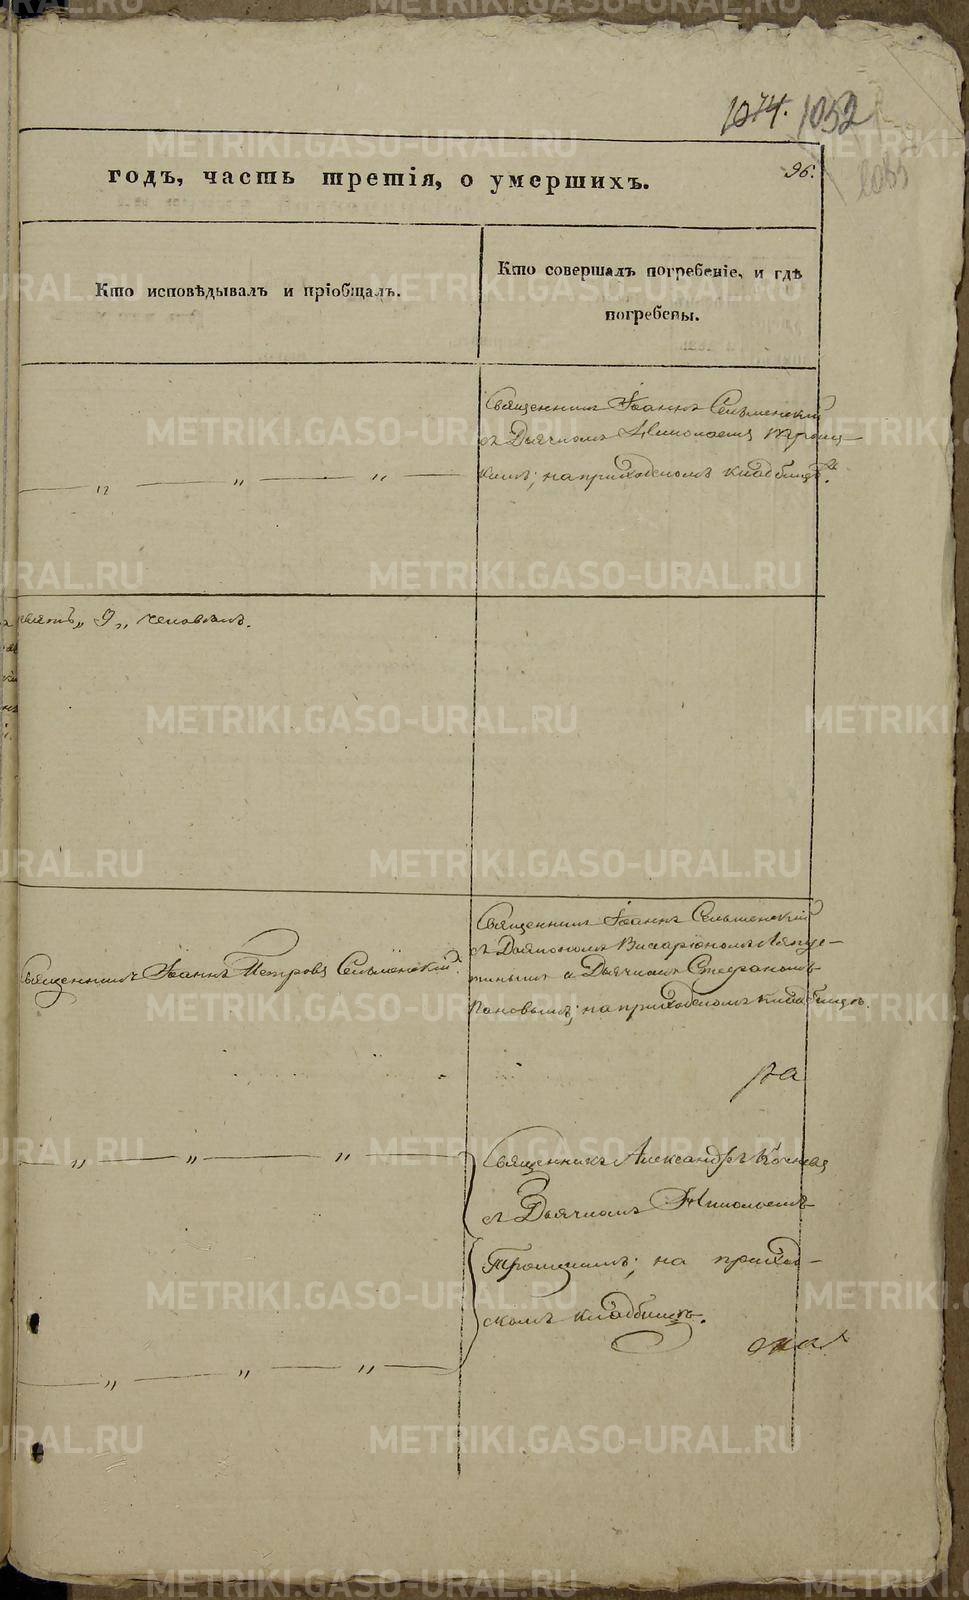 1074. 1052
96.
годъ, часть третія, о умершихъ.
Кто исповѣдывалъ и пріобщалъ.
Кто совершалъ погребеніе, и гдѣ
погребены.
Священникъ Іоаннъ Сельменскій
съ Дьячкомъ Николаемъ
кимъ; на приходскомъ кладбищѣ.
„ 9 „ человѣкъ.
Священникъ Іоаннъ Петровъ Сельменскій.
Священникъ Іоаннъ Сельменскій
съ Дьякономъ Висаріономъ
и Дьячкомъ Стефаномъ
Пановымъ; на приходскомъ кладбищѣ.
Священникъ Александръ
съ Дьячкомъ Николаемъ
на приход-
скомъ кладбищѣ.
METRIKI.GASO-URAL.RU